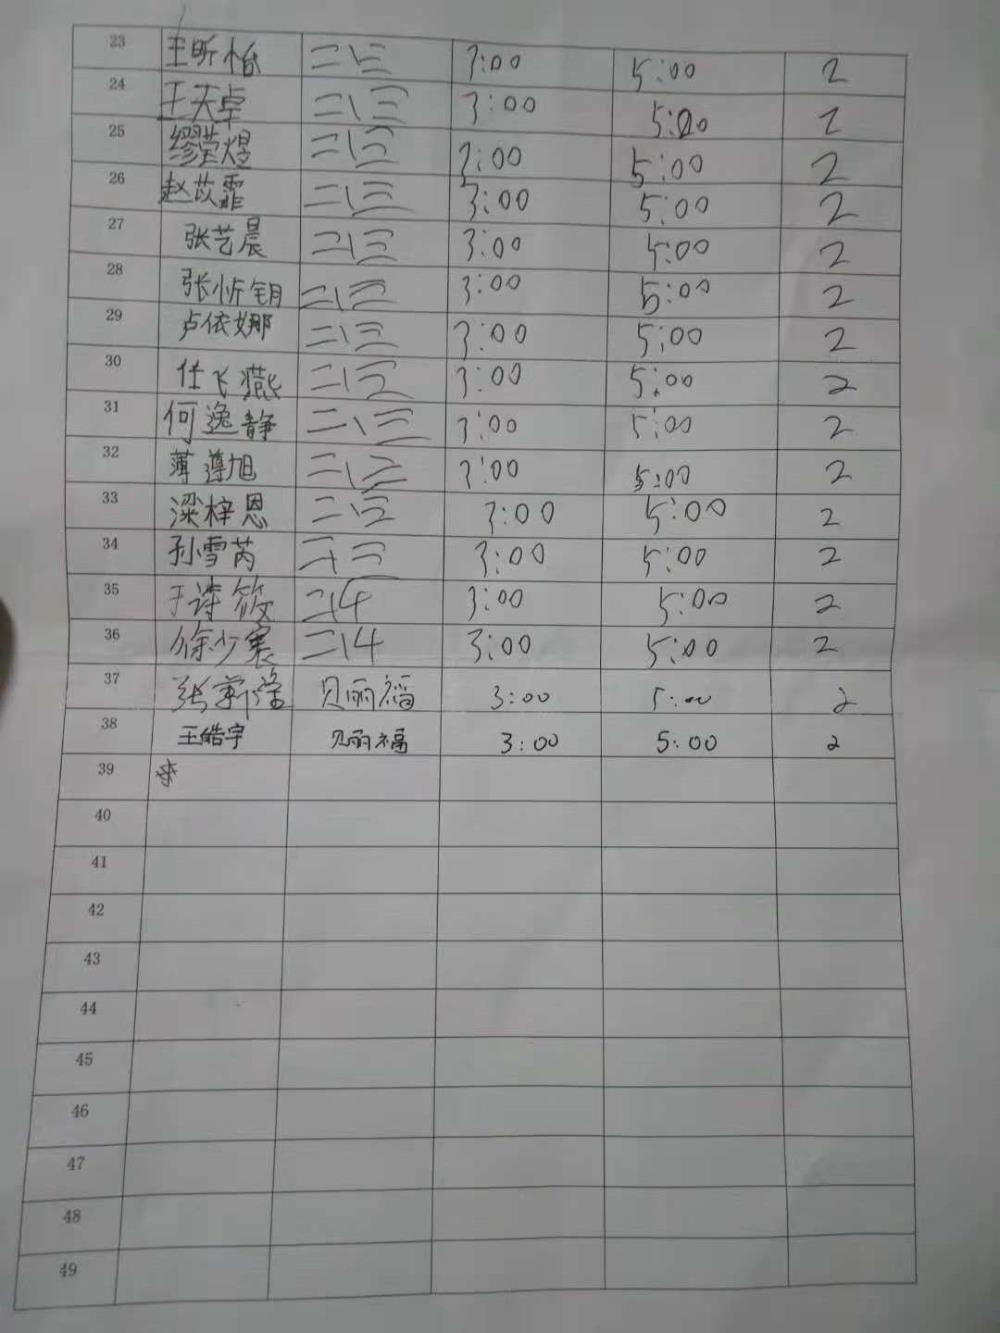 23 王昕怡 二八三 3:00 5:00 2
24 王天卓 二八三 3:00 5:00 2
25 缪莹煜 二八三 3:00 5:00 2
26 赵苡霏 二八三 3:00 5:00 2
27 张艺晨 二八三 3:00 5:00 2
28 张忻钥 二八三 3:00 5:00 2
29 卢依娜 二八三 3:00 5:00 2
30 任飞燕 二八三 3:00 5:00 2
31 何逸静 二八三 3:00 5:00 2
32 薄遵旭 二八三 3:00 5:00 2
33 梁梓恩 3:00 5:00 2
34 孙雪芮 3:00 5:00 2
35 于诗筱 二14 3:00 5:00 2
36 徐少寒 二14 3:00 5:00 2
37 张 贝丽福 3:00 5:00 2
38 王皓宇 贝丽福 3:00 5:00 2
39
40
41
42
43
44
45
46
47
48
49